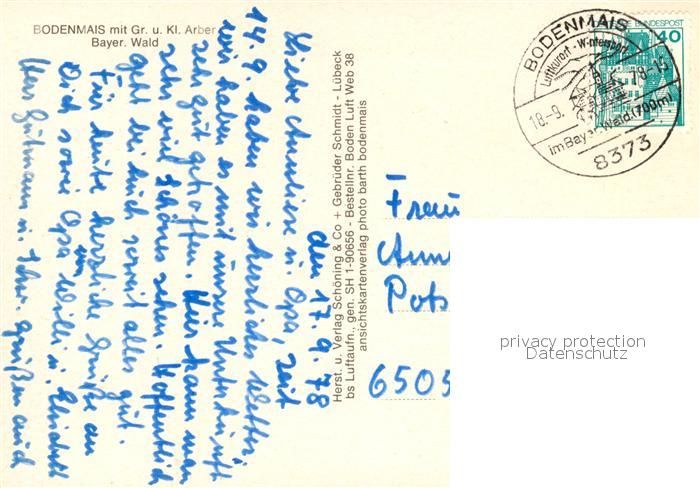 BODENMAIS mit Gr. u. Kl. Arber
Bayer. Wald
den 17.9.78
Liebe Anneliese u. Opa, seit
14.9. haben wir herrliches Wetter
wir haben es mit unsere Unterkunft
sehr gut getroffen. Hier kann man
sehr viel schönes sehn. Hoffentlich
geht bei Euch soweit alles gut.
Für heute herzliche Grüße an
Dich sowie Opa Willi u. Elisabeth
Herr u. Schw. grüßen auch
Herst. u. Verlag Schöning & Co + Gebrüder Schmidt - Lübeck
bs Luftaufn., gen. SH 1-90656 - Bestellnr. Boden Luft Web 38
ansichtskartenverlag photo barth bodenmais
BODENMAIS
Luftkurort - Wintersport
18.-9. 78-15
im Bayer. Wald (700m)
8373
BUNDESPOST
40
Frau
Ann
Pots
6505
privacy protection
Datenschutz